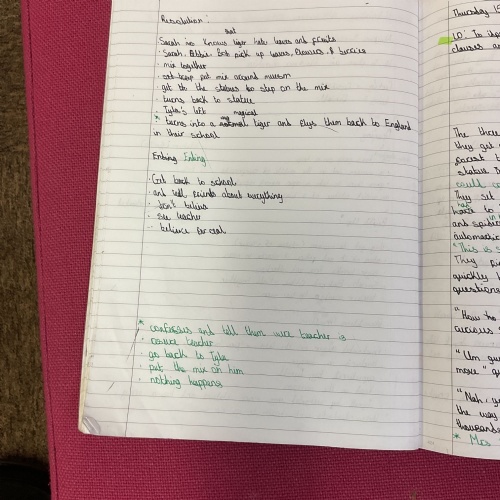 Resolution:
that
Sarah knows tiger hate leaves and fruits
· Sarah, Bot pick up leaves, flowers, & berries
· mix together
put mix around museum
· get the statues to step on the mix
· turns back to statue
· Tyke's left
magical
* turns into a tiger and flys them back to England
in their school
Ending Ending:
· Get back to school
· and tell friends about everything
· don't believe
· see teacher
· believe for real
* confesses and tell them teacher is
· teacher
· go back to Tyke
· put the mix on him
· nothing happens
Thursday 15
LO: To
clauses
The three
they get
forest
statue
could
They set
to
and
automatic
"This is
They
quickly
questions
"How
curious
"Um
more"
"Nah,
the way
thousands
*